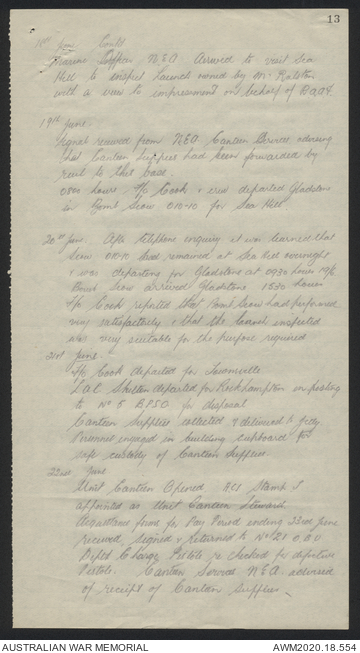 13
June Contd
Marine Officer N.E.A. Arrived to visit Sea
Hill to inspect Launch owned by Mr. Ralston
with a view to impressment on behalf of RAAF.
19th June.
Signal received from N.E.A. Canteen Services advising
that Canteen Supplies had been forwarded by
rail to this Base.
0800 hours. F/O Cook & crew departed Gladstone
in Bomb Scow 010-10 for Sea Hill.
20th June. After telephone enquiry it was learned that
Scow 010-10 had remained at Sea Hill overnight
& was departing for Gladstone at 0930 hours 19/6
Bomb Scow arrived Gladstone 1530 hours
F/O Cook reported that Bomb Scow had performed
very satisfactorily & that the launch inspected
was very suitable for the purpose required
21st June.
F/O Cook departed for Townsville
L.A.C. departed for Rockhampton on posting
to No 5 for disposal
Canteen Supplies collected & delivered to
Personnel engaged in building cupboard for
safe custody of Canteen Supplies.
22nd June
Unit Canteen Opened. ACI Stamp
appointed as Unit Canteen Steward
Acquittance forms for Pay Period ending 23rd June
received, signed & returned to No 28
Charge Pistols re checked for defective
Pistols. Canteen Services N.E.A. advised
of receipt of Canteen Supplies.
AUSTRALIAN WAR MEMORIAL
AWM2020.18.554